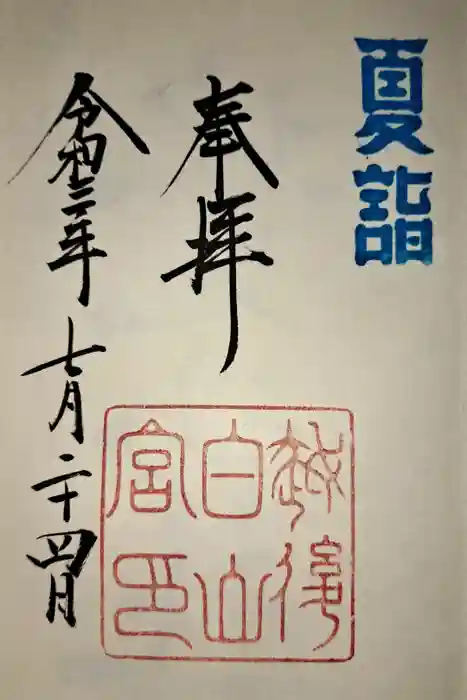 夏詣
奉拝
越後
白山
宮印
令和三年
七月二十四日